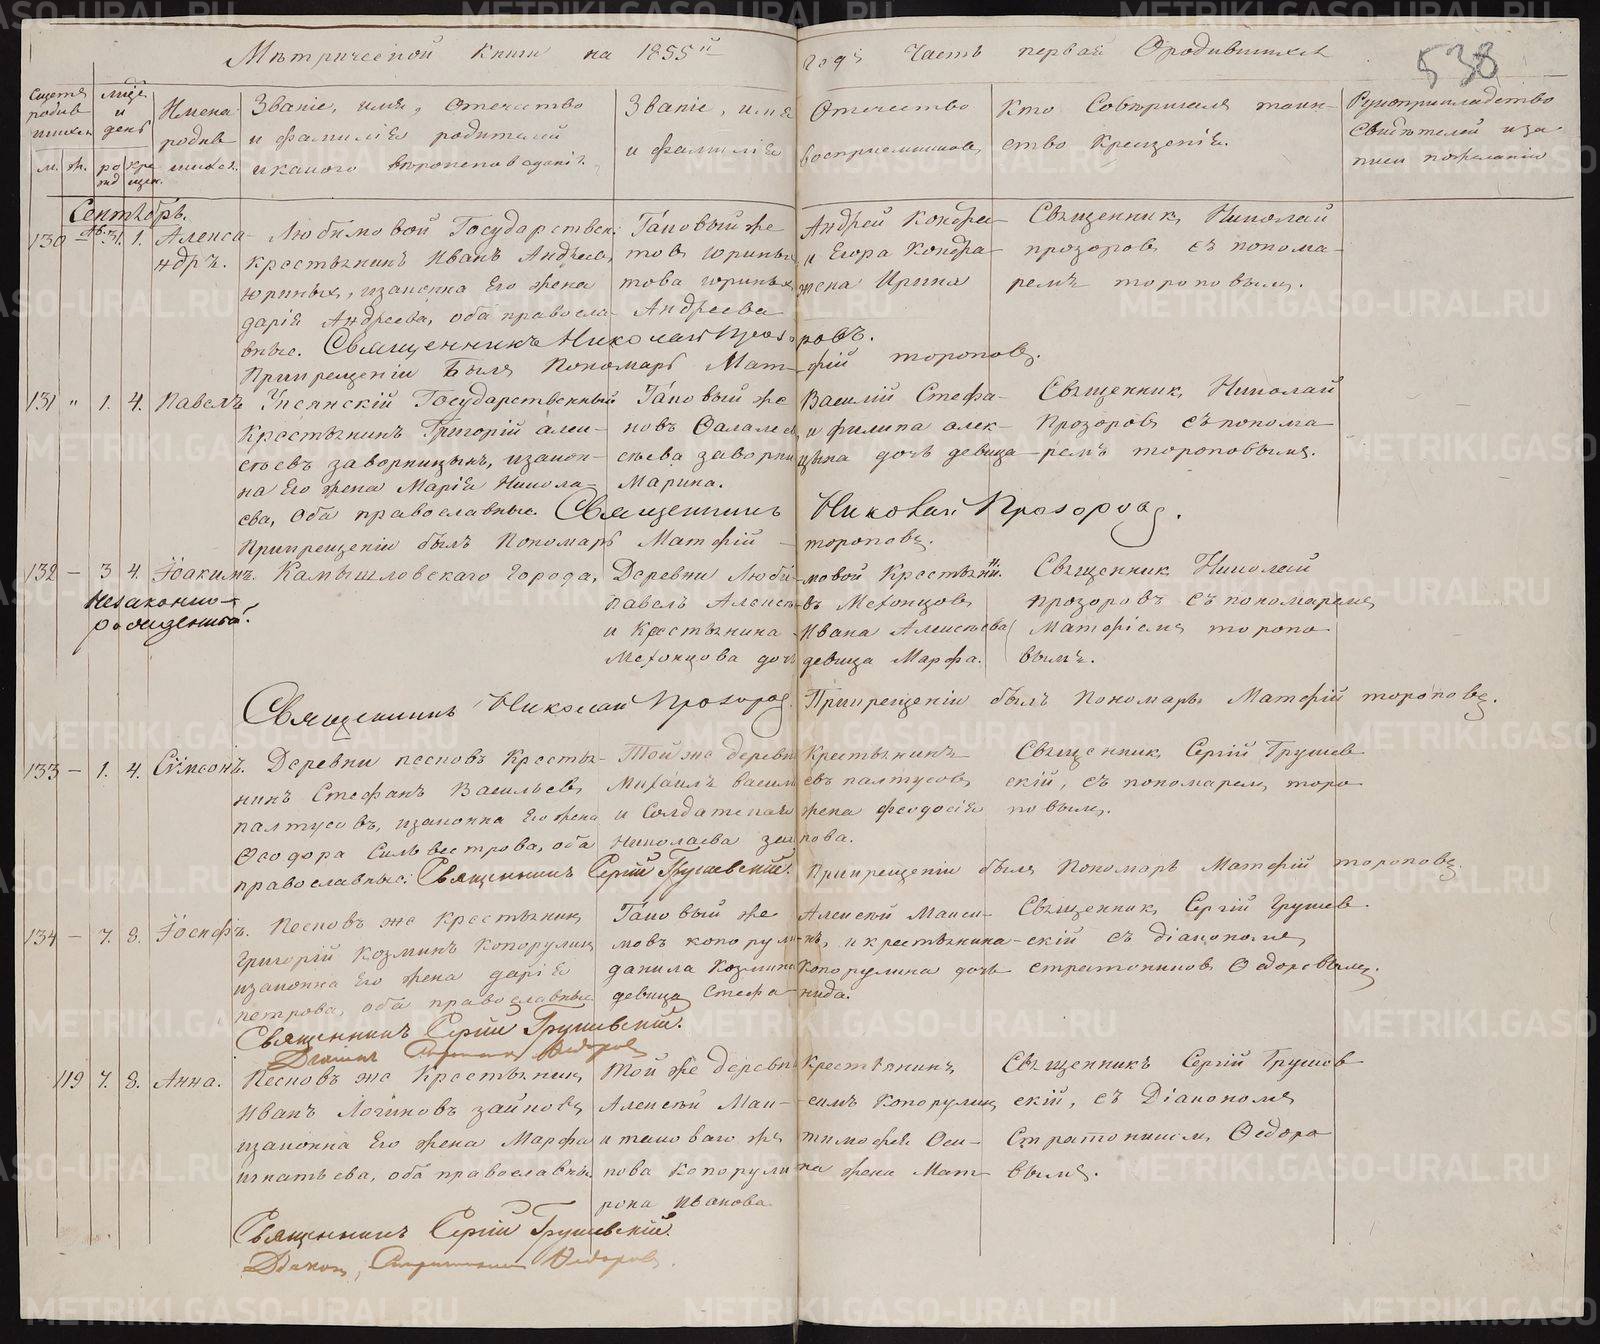 Метрической книги на 1855й годъ Часть первая О родившихся
538
Счетъ родившихся
м. ж.
Мѣс. и день
рожд крещен.
Имена родившихся.
Званіе, имя, отечество
и фамилія родителей
и какого вѣроисповеданія.
Званіе, имя Отечество
и фамилія воспріемниковъ
Кто Совершалъ таин-
ство Крещенія.
Рукоприкладство
Свидѣтелей и за
писи по желанію
Сентябрь.
130 Ав. 31. 1. Алекса-
ндръ.
Любимовой Государствен.
крестьянинъ Иванъ Андреевъ
Юриныхъ, изаконна Его жена
дарія Андреева, оба правосла-
вные. Священникъ Николай Прозоровъ.
При крещеніи Былъ Пономарь Матфій тороповъ.
Таковый же Андрей Кондра-
товъ юриныхъ и Егора Кондра-
това юриныхъ жена Ирина
Андреева
Священникъ Николай
прозоровъ съ понома-
ремъ тороповымъ.
131 " 1. 4. Павелъ
Упсянскій Государственный
Крестьянинъ Григорій алек-
сѣевъ заворницынъ, изакон-
на Его жена Марія Никола-
ева, Оба православные. Священникъ Николай Прозоровъ.
При крещеніи былъ Пономарь Матфій тороповъ.
Таковый же Василій Стефа-
новъ и филипа алек-
сѣева заворницына дочь девица
Марина.
Священникъ Николай
Прозоровъ съ понома-
ремъ тороповымъ.
132 — 3 4. Іоакимъ.
Незаконно-
рожденный.
Камышловскаго города,
Деревни Любимовой Крестьянинъ
павелъ Алексѣевъ Мехонцовъ
и Крестьянина Ивана Алексѣева
Мехонцова дочь девица Марфа.
Священникъ Николай
прозоровъ съ пономаремъ
Матфіемъ торопо-
вымъ.
Священникъ Николай Прозоровъ. При крещеніи былъ Пономарь Матфій тороповъ.
133 — 1. 4. Сѵмеонъ.
Деревни песковъ Кресть-
нинъ Стефанъ Васильевъ
палтусовъ, изаконна Его жена
Феодора Сильвестрова, оба
православные. Священникъ Сергій Грушевскій.
Той же деревни Крестьянинъ
Михаилъ васильевъ палтусовъ
и Солдатская жена феодосія
Николаева
Священникъ Сергій Грушев-
скій, съ пономаремъ торо-
повымъ.
При крещеніи былъ Пономарь Матфій тороповъ.
134 — 7. 8. Іосифъ.
Песковъ же Крестьянинъ
григорій Козминъ Копорулинъ
изаконна Его жена дарія
петрова, оба православные
Священникъ Сергій Грушевскій.
Діаконъ Стратоникъ Федоровъ
Таковый же Алексѣй Макси-
мовъ копорулинъ, и крестьянина
данила Козмина Копорулина дочь
девица Стефанида.
Священникъ Сергій Грушев-
скій съ діакономъ
стратоникомъ Федоровымъ.
119 7. 8. Анна.
Песковъ же Крестьянинъ
Иванъ Логиновъ зайковъ
изаконна Его жена Марфа
игнатьева, оба православны.
Священникъ Сергій Грушевскій.
Діаконъ, Стратоникъ Федоровъ.
Той же деревни Крестьянинъ
Алексѣй Максимъ Копорулинъ
и таковаго же тимофея Оси-
пова Копорулина жена Мат-
рона Иванова
Священникъ Сергій Грушев-
скій, съ Діакономъ
Стратоникомъ Федоро-
вымъ.
METRIKI.GASO-URAL.RU